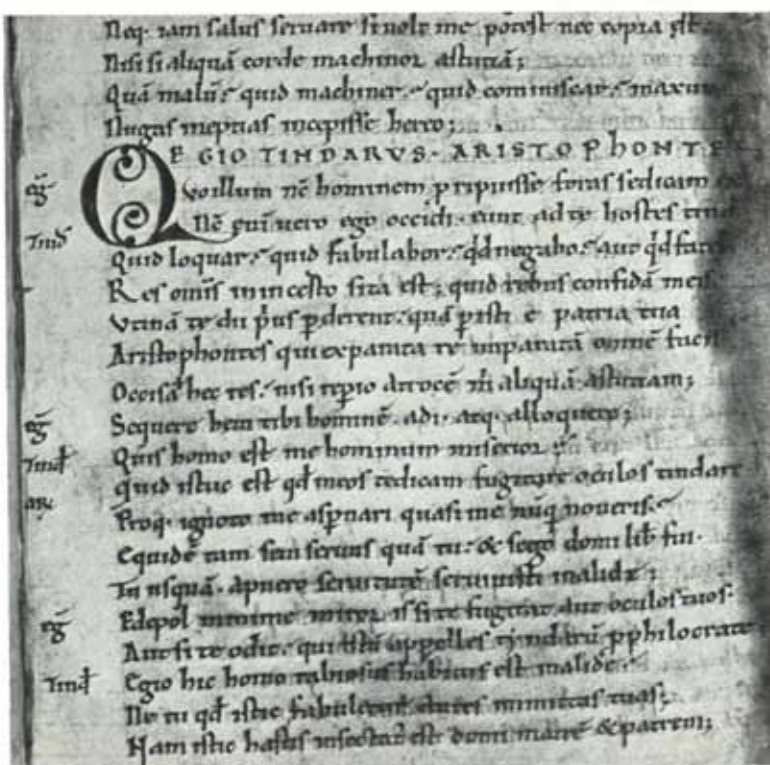 Neq· iam salus seruare si uolt me potest nec copia est
Nisi si aliquā corde machinor astutiā;
Quā malū? quid machiner? quid cominiscar? maxum
Nugas ineptias incepisse hereo;
EGIO TINDARVS· ARISTOPHONTE
eḡ Quo illum nē hominem p̄ripuisse foras se dicam
Tind̄ Nē
Quid loquar? quid fabulabor? qđ negabo? aut qđ fatear
Res omīs in incerto sita est; quid rebus confidā meis
Vtinā te dii p̄us p̄derent· quā p̄isti e patria tua
Aristophontes qui ex parata re imparatā omnē facis
Occisa hec res· nisi rep̄io atrocē m̄ aliquā astutiam;
eḡ Sequere hem tibi hominē· adi· atq· alloquere;
Tind̄ Quis homo est me hominum miserior
ar Quid istuc est qđ meos te dicam fugitare oculos tindare
Proq· ignoto me asp̄nari quasi me nūq noueris?
Equidē tam sum seruus quā tu· & si ego domi lib̄ fui·
Tu usquā· a puero seruitutē seruiuisti in alide;
eḡ Edepol minime miror is si te fugitat aut oculos tuos·
Aut si te odit· qui istū appelles tindarū p philocrate
Tind̄ Egio hic homo rabiosus habitus est in alide?
Ne tu qđ istic fabulet̄ inmittas tuas;
Nam istic hastis insectat̄ est domi matrē & patrem;